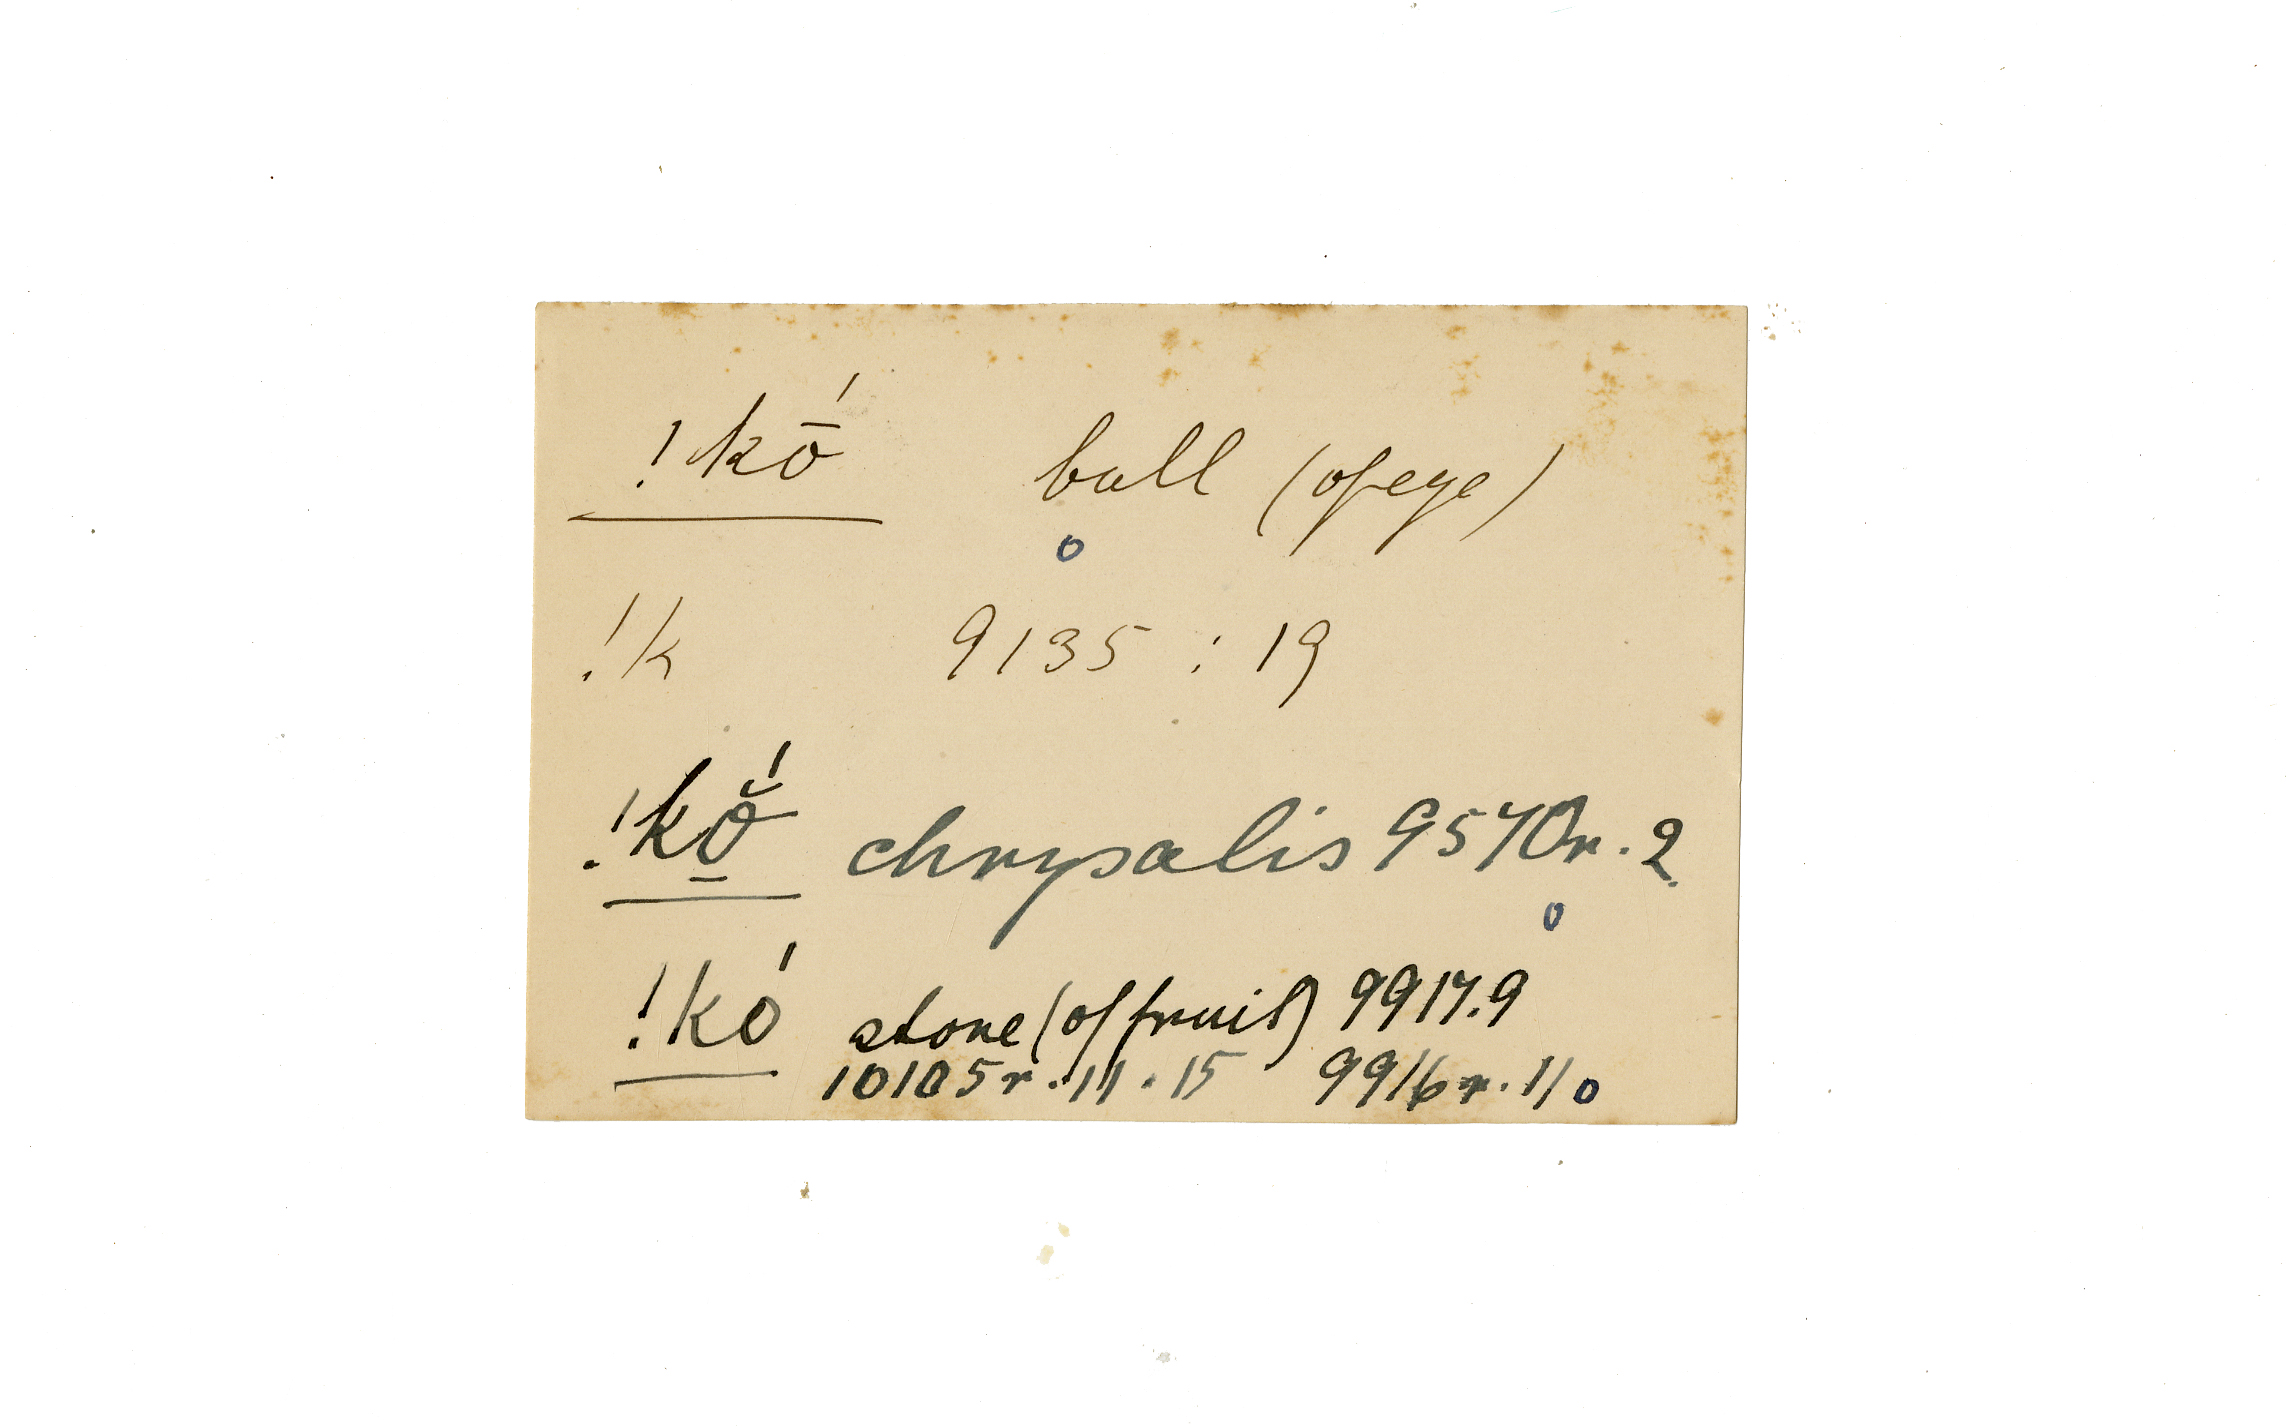 !kṓ ball (of eye)
o
!k 9135 : 19
!kŏ̱́ chrysalis 9570r. 2
o
!kó stone (of fruit) 9917.9
10105r. 11. 15 9916r. 11 o